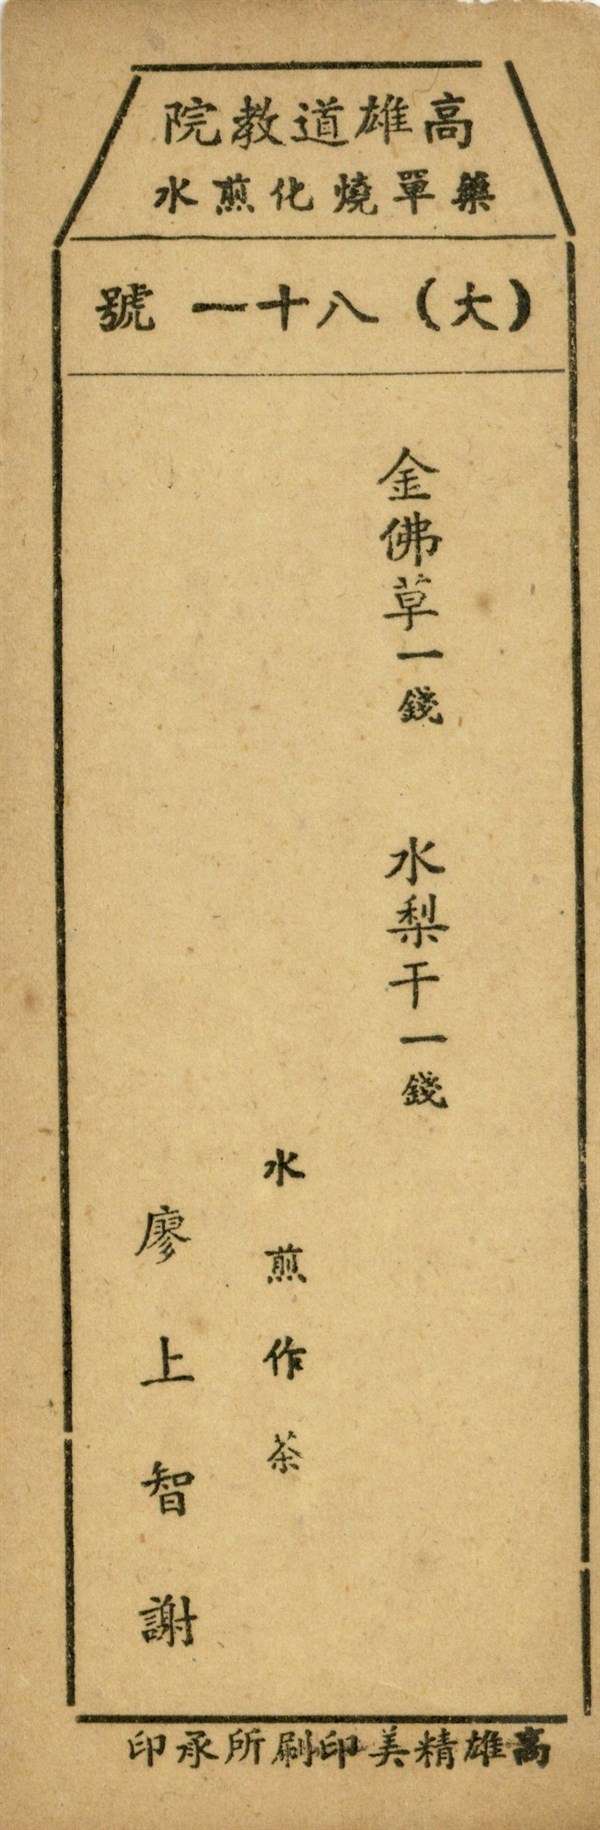 高雄道教院
藥單燒化煎水
(大)八十一號
金佛草一錢 水梨干一錢
水煎作茶
廖上智謝
高雄精美印刷所承印